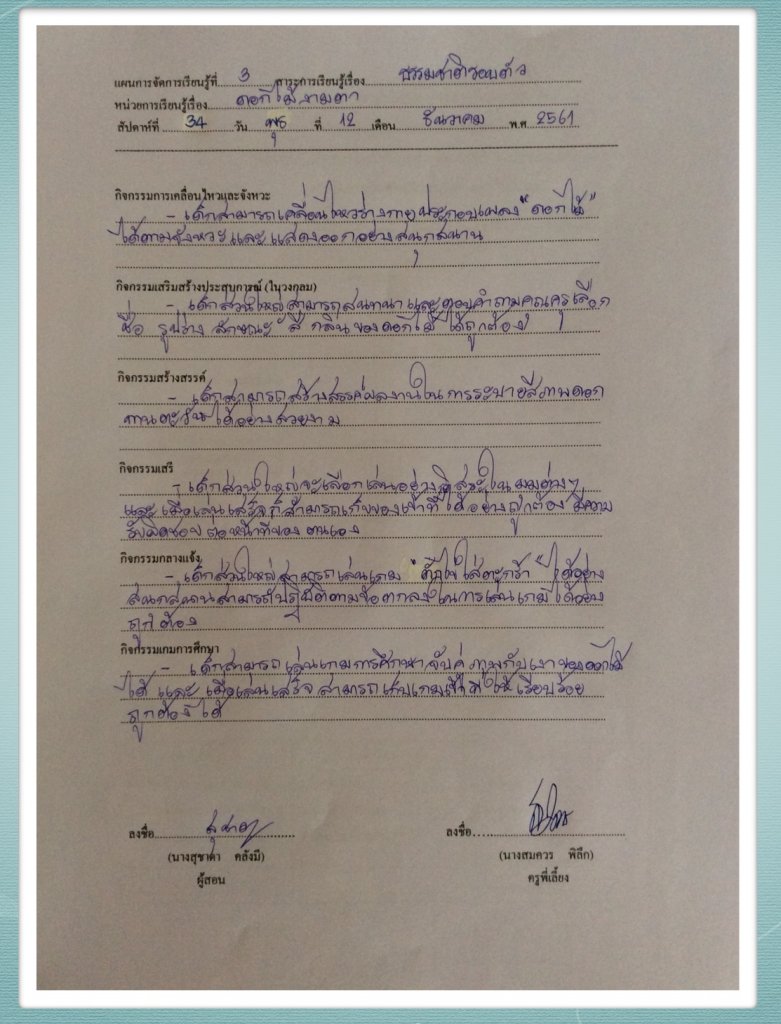 แผนการจัดการเรียนรู้ที่ 3 สาระการเรียนรู้เรื่อง ธรรมชาติรอบตัว
หน่วยการเรียนรู้เรื่อง ดอกไม้งามตา
สัปดาห์ที่ 34 วัน พุธ ที่ 12 เดือน ธันวาคม พ.ศ. 2561
กิจกรรมการเคลื่อนไหวและจังหวะ
- เด็กสามารถเคลื่อนไหวร่างกายประกอบเพลง "ดอกไม้"
ได้ตามจังหวะและแสดงออกอย่างสนุกสนาน
กิจกรรมเสริมสร้างประสบการณ์ (ในวงกลม)
- เด็กส่วนใหญ่สามารถสนทนาและตอบคำถามคุณครูเลือก
ชื่อ รูปร่าง ลักษณะ สี กลิ่นของดอกไม้ ได้ถูกต้อง
กิจกรรมสร้างสรรค์
- เด็กสามารถสร้างสรรค์ผลงานในการระบายสีภาพดอก
ทานตะวันได้อย่างสวยงาม
กิจกรรมเสรี
- เด็กส่วนใหญ่จะเลือกเล่นอย่างอิสระในมุมต่างๆ
และเมื่อเล่นเสร็จก็สามารถเก็บของเข้าที่ได้อย่างถูกต้อง มีความ
รับผิดชอบต่อหน้าที่ของตนเอง
กิจกรรมกลางแจ้ง
- เด็กส่วนใหญ่สามารถเล่นเกม " ไข่ใส่ตะกร้า" ได้อย่าง
สนุกสนานสามารถปฏิบัติตามข้อตกลงในการเล่นเกมได้อย่าง
ถูกต้อง
กิจกรรมเกมการศึกษา
- เด็กสามารถเล่นเกมการศึกษาจับคู่ภาพกับเงาของดอกไม้
ได้ และเมื่อเล่นเสร็จสามารถเก็บเกมเข้าที่ให้เรียบร้อย
ถูกต้องได้
ลงชื่อ สุชาดา ลงชื่อ
(นางสุชาดา คลังมี) (นางสมควร พิลึก)
ผู้สอน ครูพี่เลี้ยง